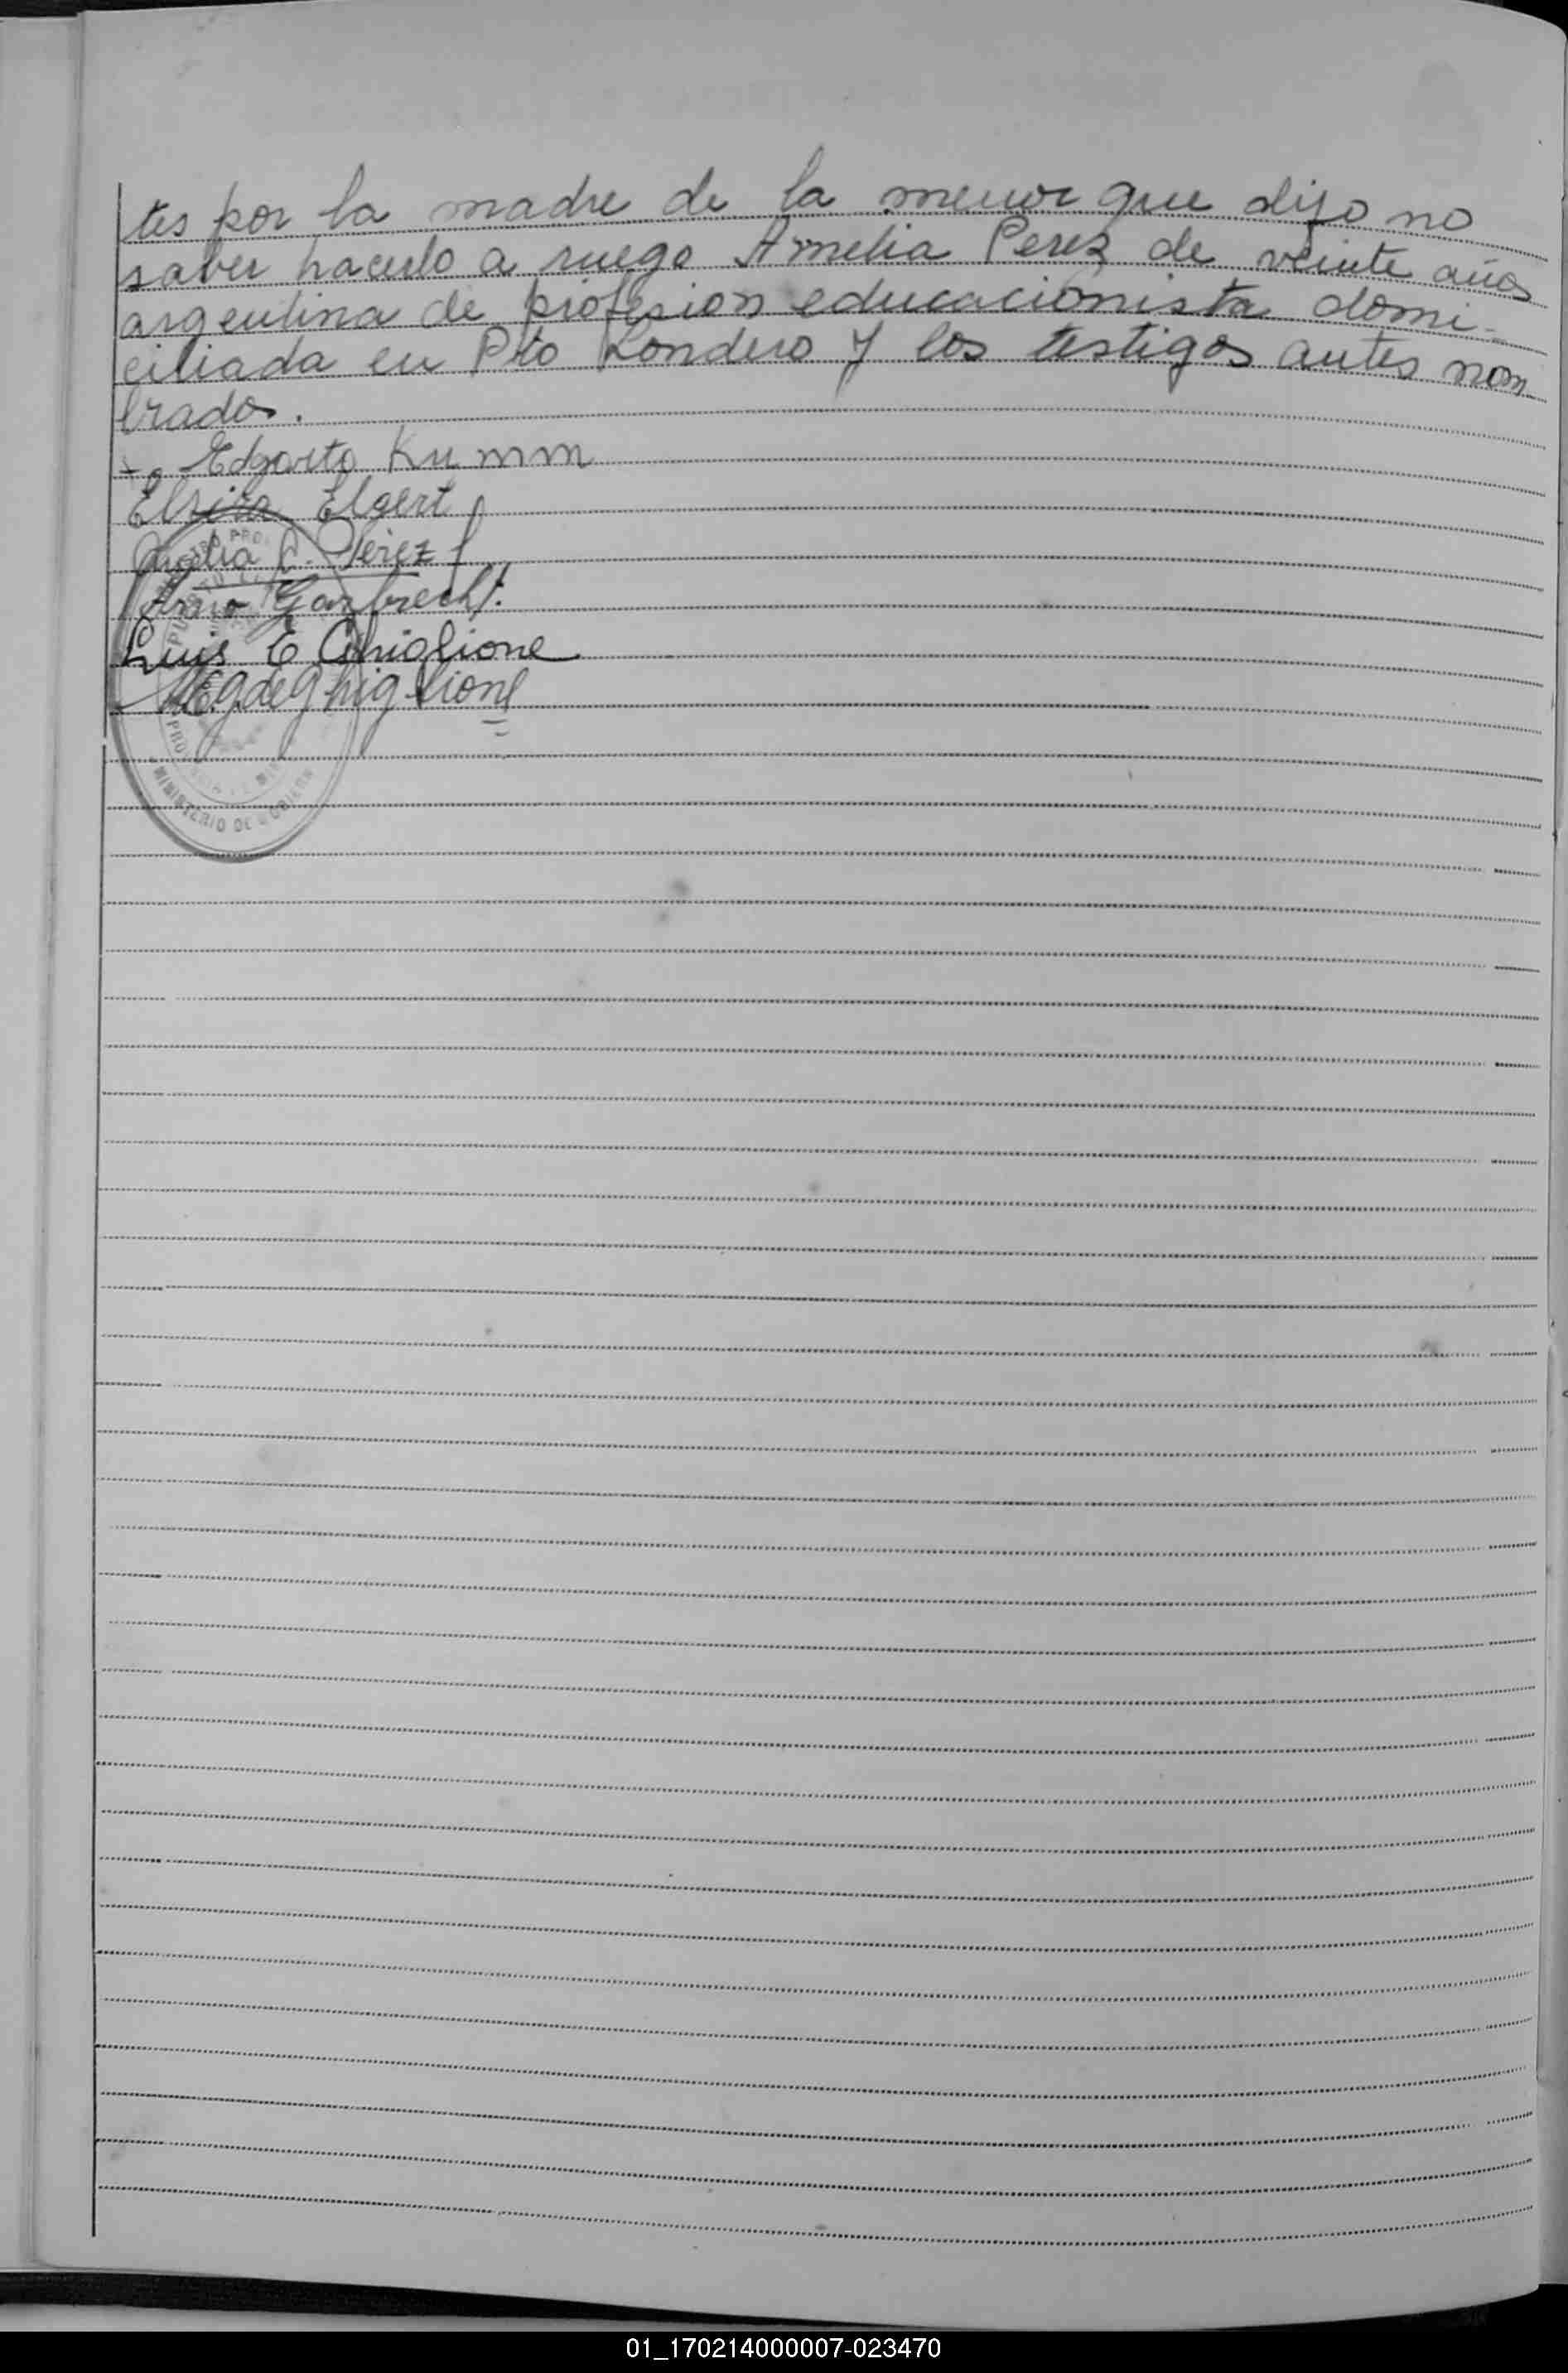 tes por la madre de la menor que dijo no
saber hacerlo a ruego Amelia Perez de veinte años
argentina de profesion educacionista domi-
ciliada en Pto Londero y los testigos antes nom
brados.
Edgarto Kumm
Elsira Elgert
Amelia C. Pérez
Arno Garbrecht.
Luis E Ghiglione
MEG de Ghiglione
MINISTERIO DE GOBIERNO
01_170214000007-023470